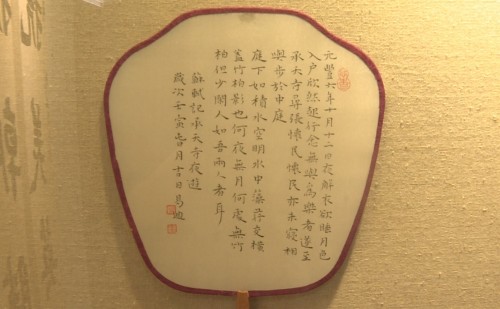 元豐六年十月十二日夜解衣欲睡月色
入戶欣然起行念無與為樂者遂至
承天寺尋張懷民懷民亦未寢相
與步於中庭
庭下如積水空明水中藻荇交橫
蓋竹柏影也何夜無月何處無竹
柏但少閒人如吾兩人者耳
蘇軾記承天寺夜遊
歲次壬寅